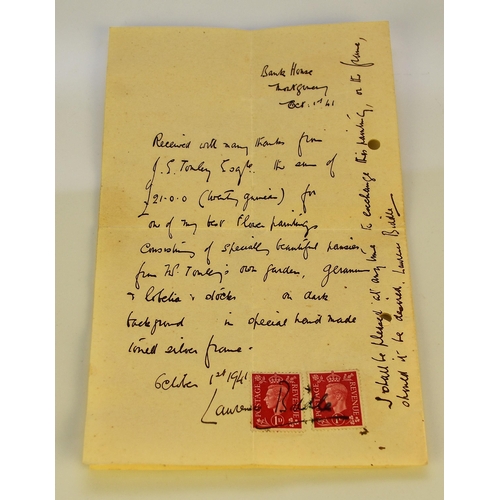 Bank House
Montgomery
Oct. 1st 41
Received with many thanks from
J. S. Tomley Esq the sum of
£21-0-0 (twenty guineas) for
one of my best Flower paintings
consisting of specially beautiful pansies
from Mr Tomley's own garden, geranium
& lobelia & stocks on dark
background in special hand made
silver frame.
October 1st 1941
Laurence Biddle
REVENUE
POSTAGE
1D
REVENUE
POSTAGE
1D
I shall be pleased at any time to exchange this painting, or the frame,
should it be desired, Laurence Biddle